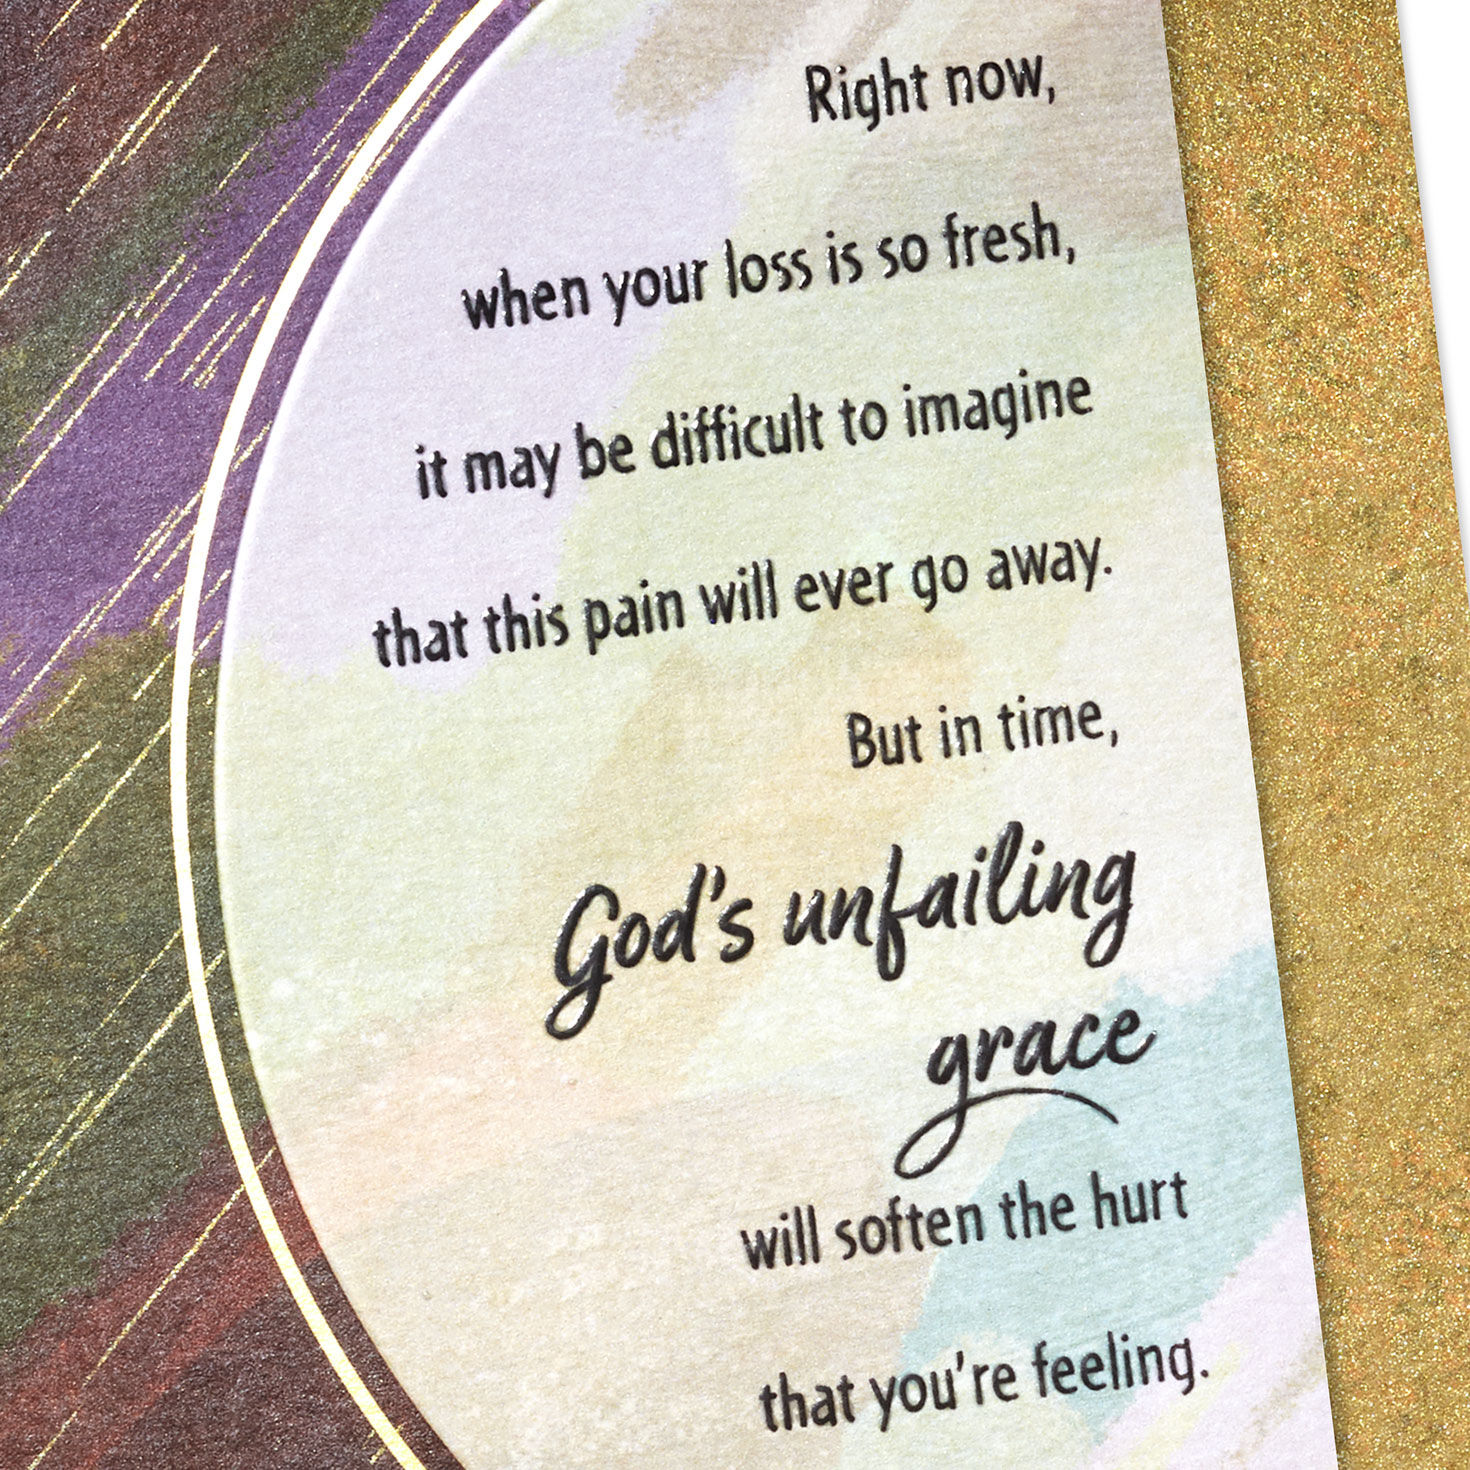 Right now,
when your loss is so fresh,
it may be difficult to imagine
that this pain will ever go away.
But in time,
God's unfailing
grace
will soften the hurt
that you're feeling.